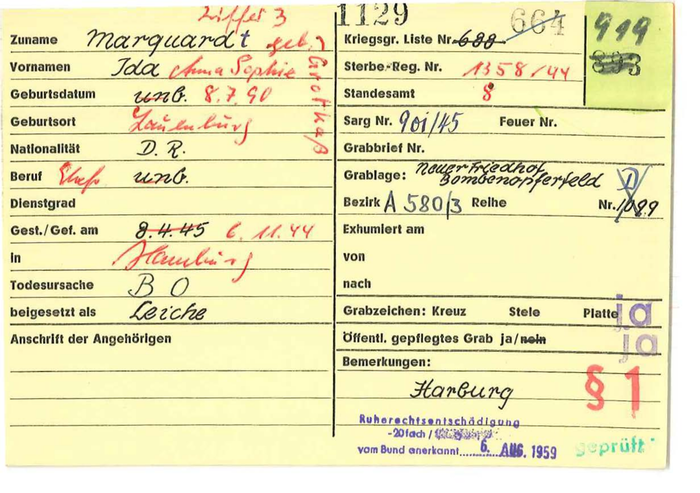 Ziffer 3
1129
664
919
893
Zuname Marquardt geb. Grothaß
Kriegsgr. Liste Nr. 688
Vornamen Ida Anna Sophie
Sterbe-Reg. Nr. 1358/44
Geburtsdatum unb. 8.7.90
Standesamt §
Geburtsort Lauenburg
Sarg Nr. 901/45 Feuer Nr.
Nationalität D. R.
Grabbrief Nr.
Beruf Ehefr. unb.
Grablage: Neuer Friedhof
Bombenopferfeld
Dienstgrad
Bezirk A 580/3 Reihe Nr. 1099
Gest./Gef. am 8.4.45 6.11.44
Exhumiert am
in Hamburg
von
Todesursache B O
nach
beigesetzt als Leiche
Grabzeichen: Kreuz Stele Platte ja
Anschrift der Angehörigen
Öffentl. gepflegtes Grab ja/nein ja
Bemerkungen:
Harburg
§ 1
Ruherechtsentschädigung
-20fach /
vom Bund anerkannt 6. AUG. 1959
geprüft